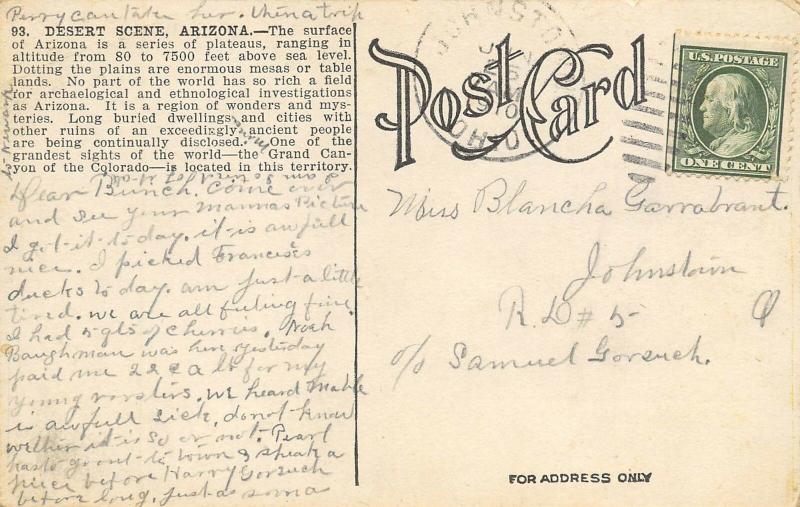 Perry can take her. then a trip
93. DESERT SCENE, ARIZONA.—The surface
of Arizona is a series of plateaus, ranging in
altitude from 80 to 7500 feet above sea level.
Dotting the plains are enormous mesas or table
lands. No part of the world has so rich a field
for archaeological and ethnological investigations
as Arizona. It is a region of wonders and mys-
teries. Long buried dwellings and cities with
other ruins of an exceedingly ancient people
are being continually disclosed. One of the
grandest sights of the world—the Grand Can-
yon of the Colorado—is located in this territory.
to Newark
Dear Bunch. Come over
and see your Mamas Picture
I got it to day. it is awfull
nice. I picked Francises
ducks to day. am just a little
tired. we are all feeling fine.
I had 5 qts of cherries. Noah
Baughman was here yesterday
paid me 22 c a lb for my
young roosters. we heard Mable
is awfull sick, do not know
wether it is so or not. Pearl
has to go out to town & speak a
piece before Harry Gorsuch
before long. just as soon as
Post Card
JOHNSTO
OHIO
U.S. POSTAGE
ONE CENT
Miss Blancha Garrabrant.
Johnstown
R. D # 5- O
c/o Samuel Gorsuch.
FOR ADDRESS ONLY